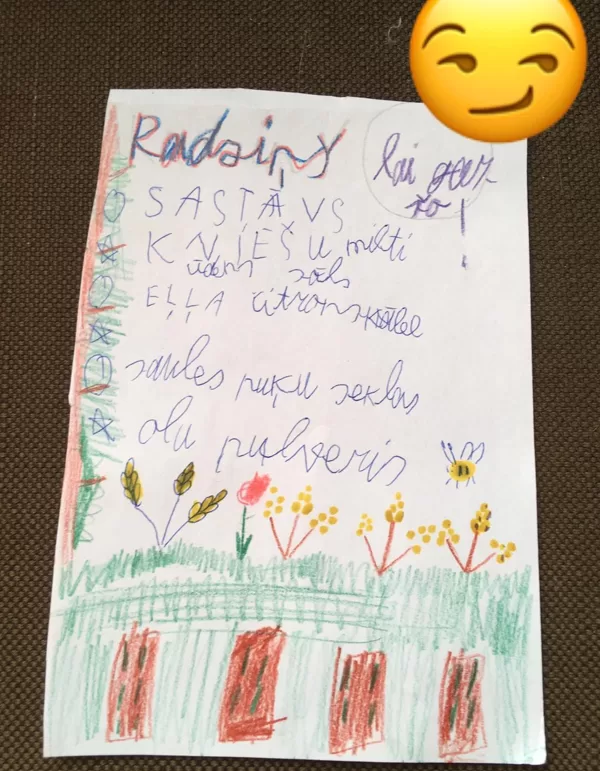 Radziņy
lai gar-
žo!
SASTĀVS
KVIEŠU milti
ūdens sāls
EĻĻA citronskābe
saules puķu seklas
olu pulveris